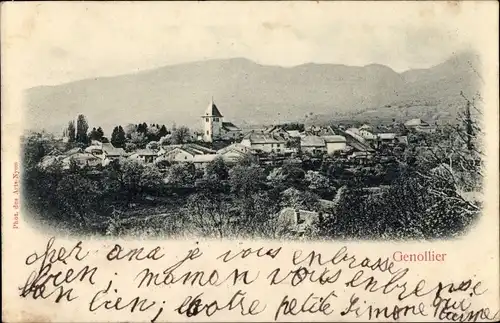 Genollier
Phot. des Arts-Nyon
Cher ama je vous embrasse
bien Maman vous embrasse
bien bien, votre petite Simone qui
vous aime